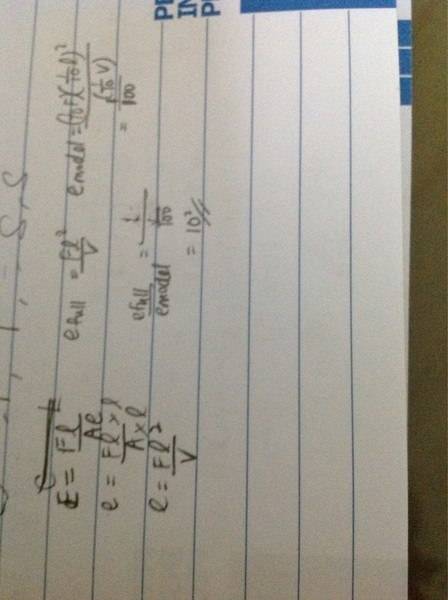 E = Fl / Ae
e = Fl × l / A × l
e = Fl² / V
e full = Fl² / V
e model = (1/10 F)(1/10 l)² / (1/10 V)
= 1/100
efull / emodel = 1 / 1/100
= 10²